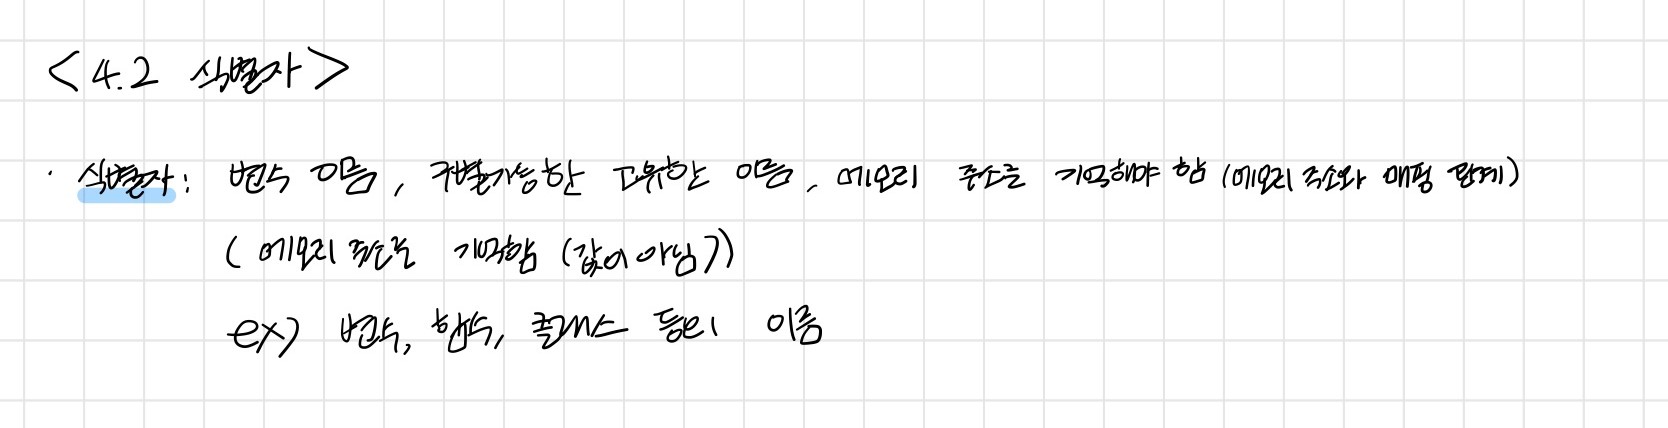 <4.2 식별자>
· 식별자: 변수 이름, 구별가능한 고유한 이름, 메모리 주소를 기억해야 함 (메모리 주소와 매핑 관계)
( 메모리 주소를 기억함 (값이 아님))
ex) 변수, 함수, 클래스 등의 이름